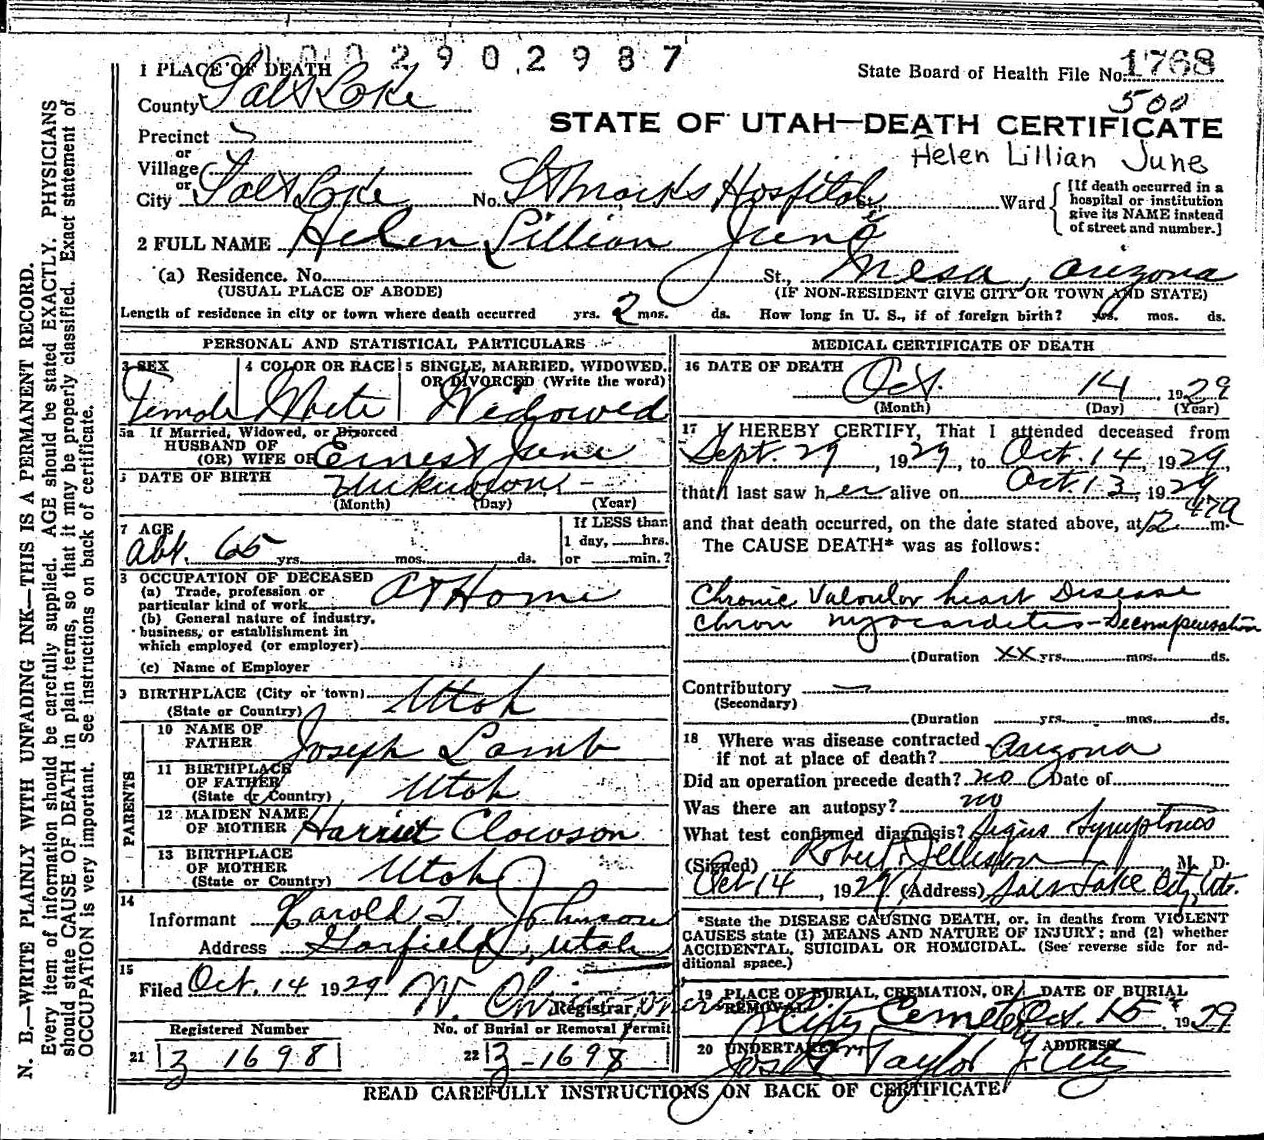 1002902987
1 PLACE OF DEATH
State Board of Health File No. 1768
County Salt Lake
500
Precinct
STATE OF UTAH—DEATH CERTIFICATE
or
Village
Helen Lillian June
or
City Salt Lake No. St Marks Hospital St., Ward
[If death occurred in a
hospital or institution
give its NAME instead
of street and number.]
2 FULL NAME Helen Lillian June
(a) Residence. No. St., Mesa, Arizona
(USUAL PLACE OF ABODE) (IF NON-RESIDENT GIVE CITY OR TOWN AND STATE)
Length of residence in city or town where death occurred yrs. 2 mos. ds. How long in U. S., if of foreign birth? yrs. mos. ds.
PERSONAL AND STATISTICAL PARTICULARS
3 SEX 4 COLOR OR RACE 5 SINGLE, MARRIED, WIDOWED,
OR DIVORCED (Write the word)
Female White Widowed
5a If Married, Widowed, or Divorced
HUSBAND OF
(OR) WIFE OF Ernest June
DATE OF BIRTH Unknown
(Month) (Day) (Year)
7 AGE If LESS than
Abt. 65 yrs. mos. ds. 1 day, hrs.
or min.?
8 OCCUPATION OF DECEASED
(a) Trade, profession or
particular kind of work At Home
(b) General nature of industry,
business, or establishment in
which employed (or employer)
(c) Name of Employer
9 BIRTHPLACE (City or town)
(State or Country) Utah
PARENTS
10 NAME OF
FATHER Joseph Lamb
11 BIRTHPLACE
OF FATHER
(State or Country) Utah
12 MAIDEN NAME
OF MOTHER Harriet Clowson
13 BIRTHPLACE
OF MOTHER
(State or Country) Utah
14
Informant Harold T. Johnson
Address Garfield, Utah
15
Filed Oct. 14 1929 W.
Registrar
Registered Number No. of Burial or Removal Permit
21 3 1698 22 3-1698
MEDICAL CERTIFICATE OF DEATH
16 DATE OF DEATH
Oct. 14, 1929
(Month) (Day) (Year)
17 I HEREBY CERTIFY, That I attended deceased from
Sept. 29, 1929, to Oct. 14, 1929,
that I last saw her alive on Oct. 13, 1929
and that death occurred, on the date stated above, at 12 47a m.
The CAUSE DEATH* was as follows:
Chronic Valvular heart Disease
Chron myocarditis-Decompensation
(Duration xx yrs. mos. ds.
Contributory
(Secondary)
(Duration yrs. mos. ds.
18 Where was disease contracted
if not at place of death? Arizona
Did an operation precede death? no Date of
Was there an autopsy? no
What test confirmed diagnosis? Signs Symptoms
(Signed) Robert Jellison M. D.
Oct 14, 1929 (Address) Salt Lake City, Ut.
*State the DISEASE CAUSING DEATH, or, in deaths from VIOLENT
CAUSES state (1) MEANS AND NATURE OF INJURY; and (2) whether
ACCIDENTAL, SUICIDAL OR HOMICIDAL. (See reverse side for ad-
ditional space.)
19 PLACE OF BURIAL, CREMATION, OR DATE OF BURIAL
REMOVAL
City Cemetery Oct. 15, 1929
20 UNDERTAKER ADDRESS
Jos. Taylor City
READ CAREFULLY INSTRUCTIONS ON BACK OF CERTIFICATE
N. B.—WRITE PLAINLY WITH UNFADING INK—THIS IS A PERMANENT RECORD.
Every item of information should be carefully supplied. AGE should be stated EXACTLY. PHYSICIANS
should state CAUSE OF DEATH in plain terms, so that it may be properly classified. Exact statement of
OCCUPATION is very important. See instructions on back of certificate.